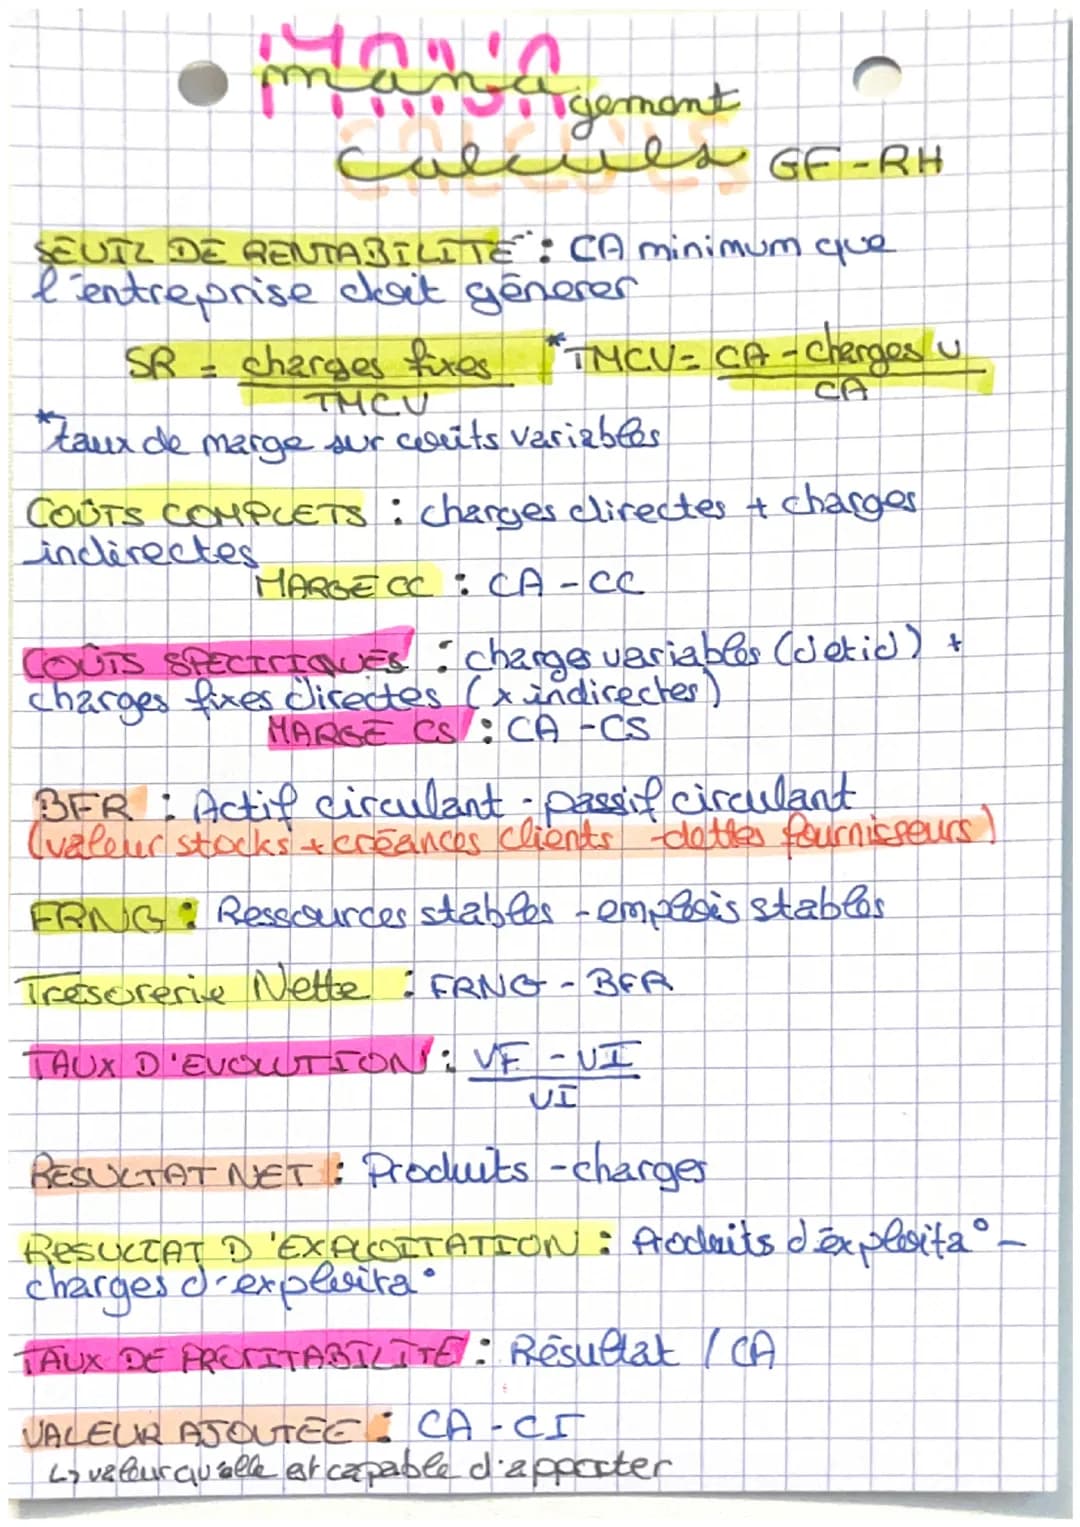 management
Calculs GF-RH
SEUIL DE RENTABILITE : CA minimum que
l'entreprise doit génerer
SR = charges fixes / TMCU
*TMCU = CA - charges U / CA
*taux de marge sur coûts variables
COÛTS COMPLETS : charges directes + charges
indirectes
MARGE CC : CA - CC
COÛTS SPECIFIQUES : charges variables (d et id) +
charges fixes directes (x indirectes)
MARGE CS : CA - CS
BFR : Actif circulant - passif circulant
(valeur stocks + créances clients - dettes fournisseurs)
FRNG : Ressources stables - emplois stables
Tresorerie Nette : FRNG - BFR
TAUX D'EVOLUTION : VF - VI / VI
RESULTAT NET : Produits - charges
RESULTAT D'EXPLOITATION : Produits d'exploita° -
charges d'exploita°
TAUX DE PROFITABILITE : Résultat / CA
VALEUR AJOUTÉE : CA - CI
↳ valeur qu'elle est capable d'apporter